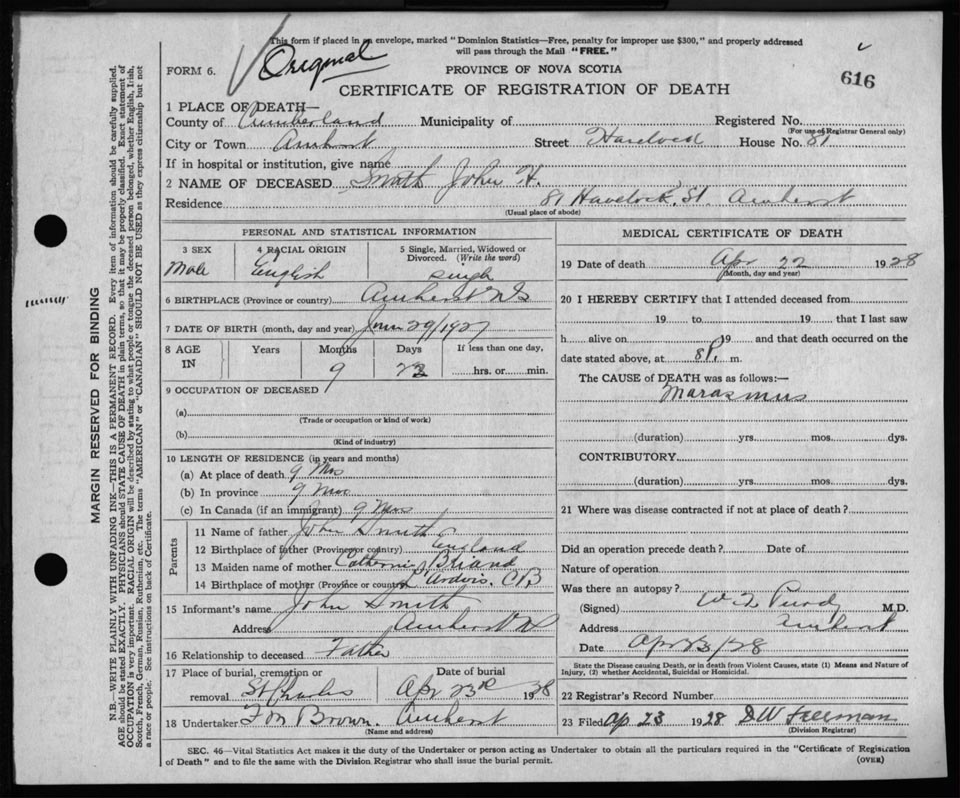 This form if placed in an envelope, marked "Dominion Statistics—Free, penalty for improper use $300," and properly addressed
will pass through the Mail "FREE."
Original
FORM 6.
PROVINCE OF NOVA SCOTIA
616
CERTIFICATE OF REGISTRATION OF DEATH
1 PLACE OF DEATH—
County of Cumberland Municipality of Registered No.
(For use of Registrar General only)
City or Town Amherst Street Havelock House No. 81
If in hospital or institution, give name
2 NAME OF DECEASED Smith John H.
Residence 81 Havelock St. Amherst
(Usual place of abode)
PERSONAL AND STATISTICAL INFORMATION
3 SEX 4 RACIAL ORIGIN 5 Single, Married, Widowed or
Divorced. (Write the word)
Male English single
6 BIRTHPLACE (Province or country) Amherst NS
7 DATE OF BIRTH (month, day and year) 29/1927
8 AGE IN Years Months Days If less than one day,
9 hrs. or min.
9 OCCUPATION OF DECEASED
(a)
(Trade or occupation or kind of work)
(b)
(Kind of industry)
10 LENGTH OF RESIDENCE (in years and months)
(a) At place of death 9 Mos
(b) In province 9 Mos
(c) In Canada (if an immigrant) 9 Mos
Parents
11 Name of father John Smith
12 Birthplace of father (Province or country) England
13 Maiden name of mother Catherine Briand
14 Birthplace of mother (Province or country) L'Ardois. C B
15 Informant's name John Smith
Address Amherst NS
16 Relationship to deceased Father
17 Place of burial, cremation or Date of burial
removal St Charles Apr 23rd 1928
18 Undertaker Brown. Amherst
(Name and address)
MEDICAL CERTIFICATE OF DEATH
19 Date of death Apr 22 1928
(Month, day and year)
20 I HEREBY CERTIFY that I attended deceased from
19 to 19 that I last saw
h alive on 19 and that death occurred on the
date stated above, at 8P. m.
The CAUSE of DEATH was as follows:—
Marasmus
(duration) yrs. mos. dys.
CONTRIBUTORY
(duration) yrs. mos. dys.
21 Where was disease contracted if not at place of death?
Did an operation precede death? Date of
Nature of operation
Was there an autopsy?
(Signed) Purdy M.D.
Address Amherst
Date Apr 23/28
State the Disease causing Death, or in death from Violent Causes, state (1) Means and Nature of
Injury, (2) whether Accidental, Suicidal or Homicidal.
22 Registrar's Record Number
23 Filed Ap 23 1928 D W Freeman
(Division Registrar)
SEC. 46—Vital Statistics Act makes it the duty of the Undertaker or person acting as Undertaker to obtain all the particulars required in the "Certificate of Registration
of Death" and to file the same with the Division Registrar who shall issue the burial permit. (OVER)
MARGIN RESERVED FOR BINDING
N.B.—WRITE PLAINLY WITH UNFADING INK—THIS IS A PERMANENT RECORD. Every item of information should be carefully supplied.
AGE should be stated EXACTLY. PHYSICIANS should STATE CAUSE OF DEATH in plain terms, so that it may be properly classified. Exact statement of
OCCUPATION is very important. RACIAL ORIGIN will be described by stating to what people or tongue the deceased person belonged, whether English, Irish,
Scotch, French, German, Russian, Ruthenian, etc. The terms "AMERICAN" or "CANADIAN" SHOULD NOT BE USED as they express citizenship but not
a race or people. See instructions on back of Certificate.